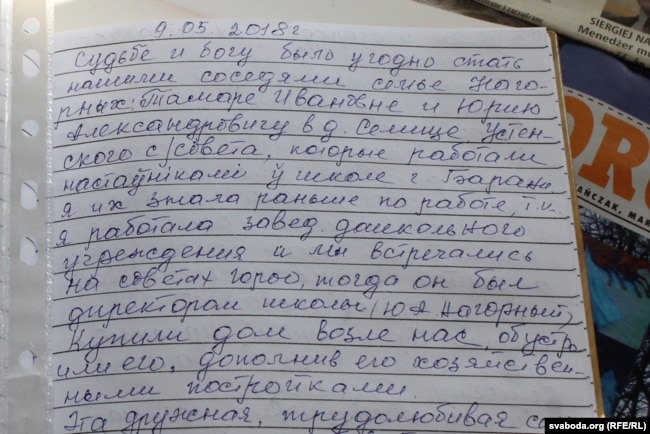 9.05.2018г
Судьбе и богу было угодно стать
нашими соседями семье Наго-
рных: Тамаре Ивановне и Юрию
Александровичу в д. Селище, Устен-
ского с/совета, которые работали
настаўнікамі ў школе г. Барань
я их знала раньше по работе, т.к.
я работала завед. дошкольного
учреждения и мы встречались
на советах гороо, тогда он был
директором школы (Ю.А. Нагорный)
Купили дом возле нас, обустро
или его, дополнив его хозяйствен-
ными постройками.
Эта дружная, трудолюбивая
SIERGIEJ NA
Menedżer m
OR
AŃCZAK, MAR
svaboda.org (RFE/RL)